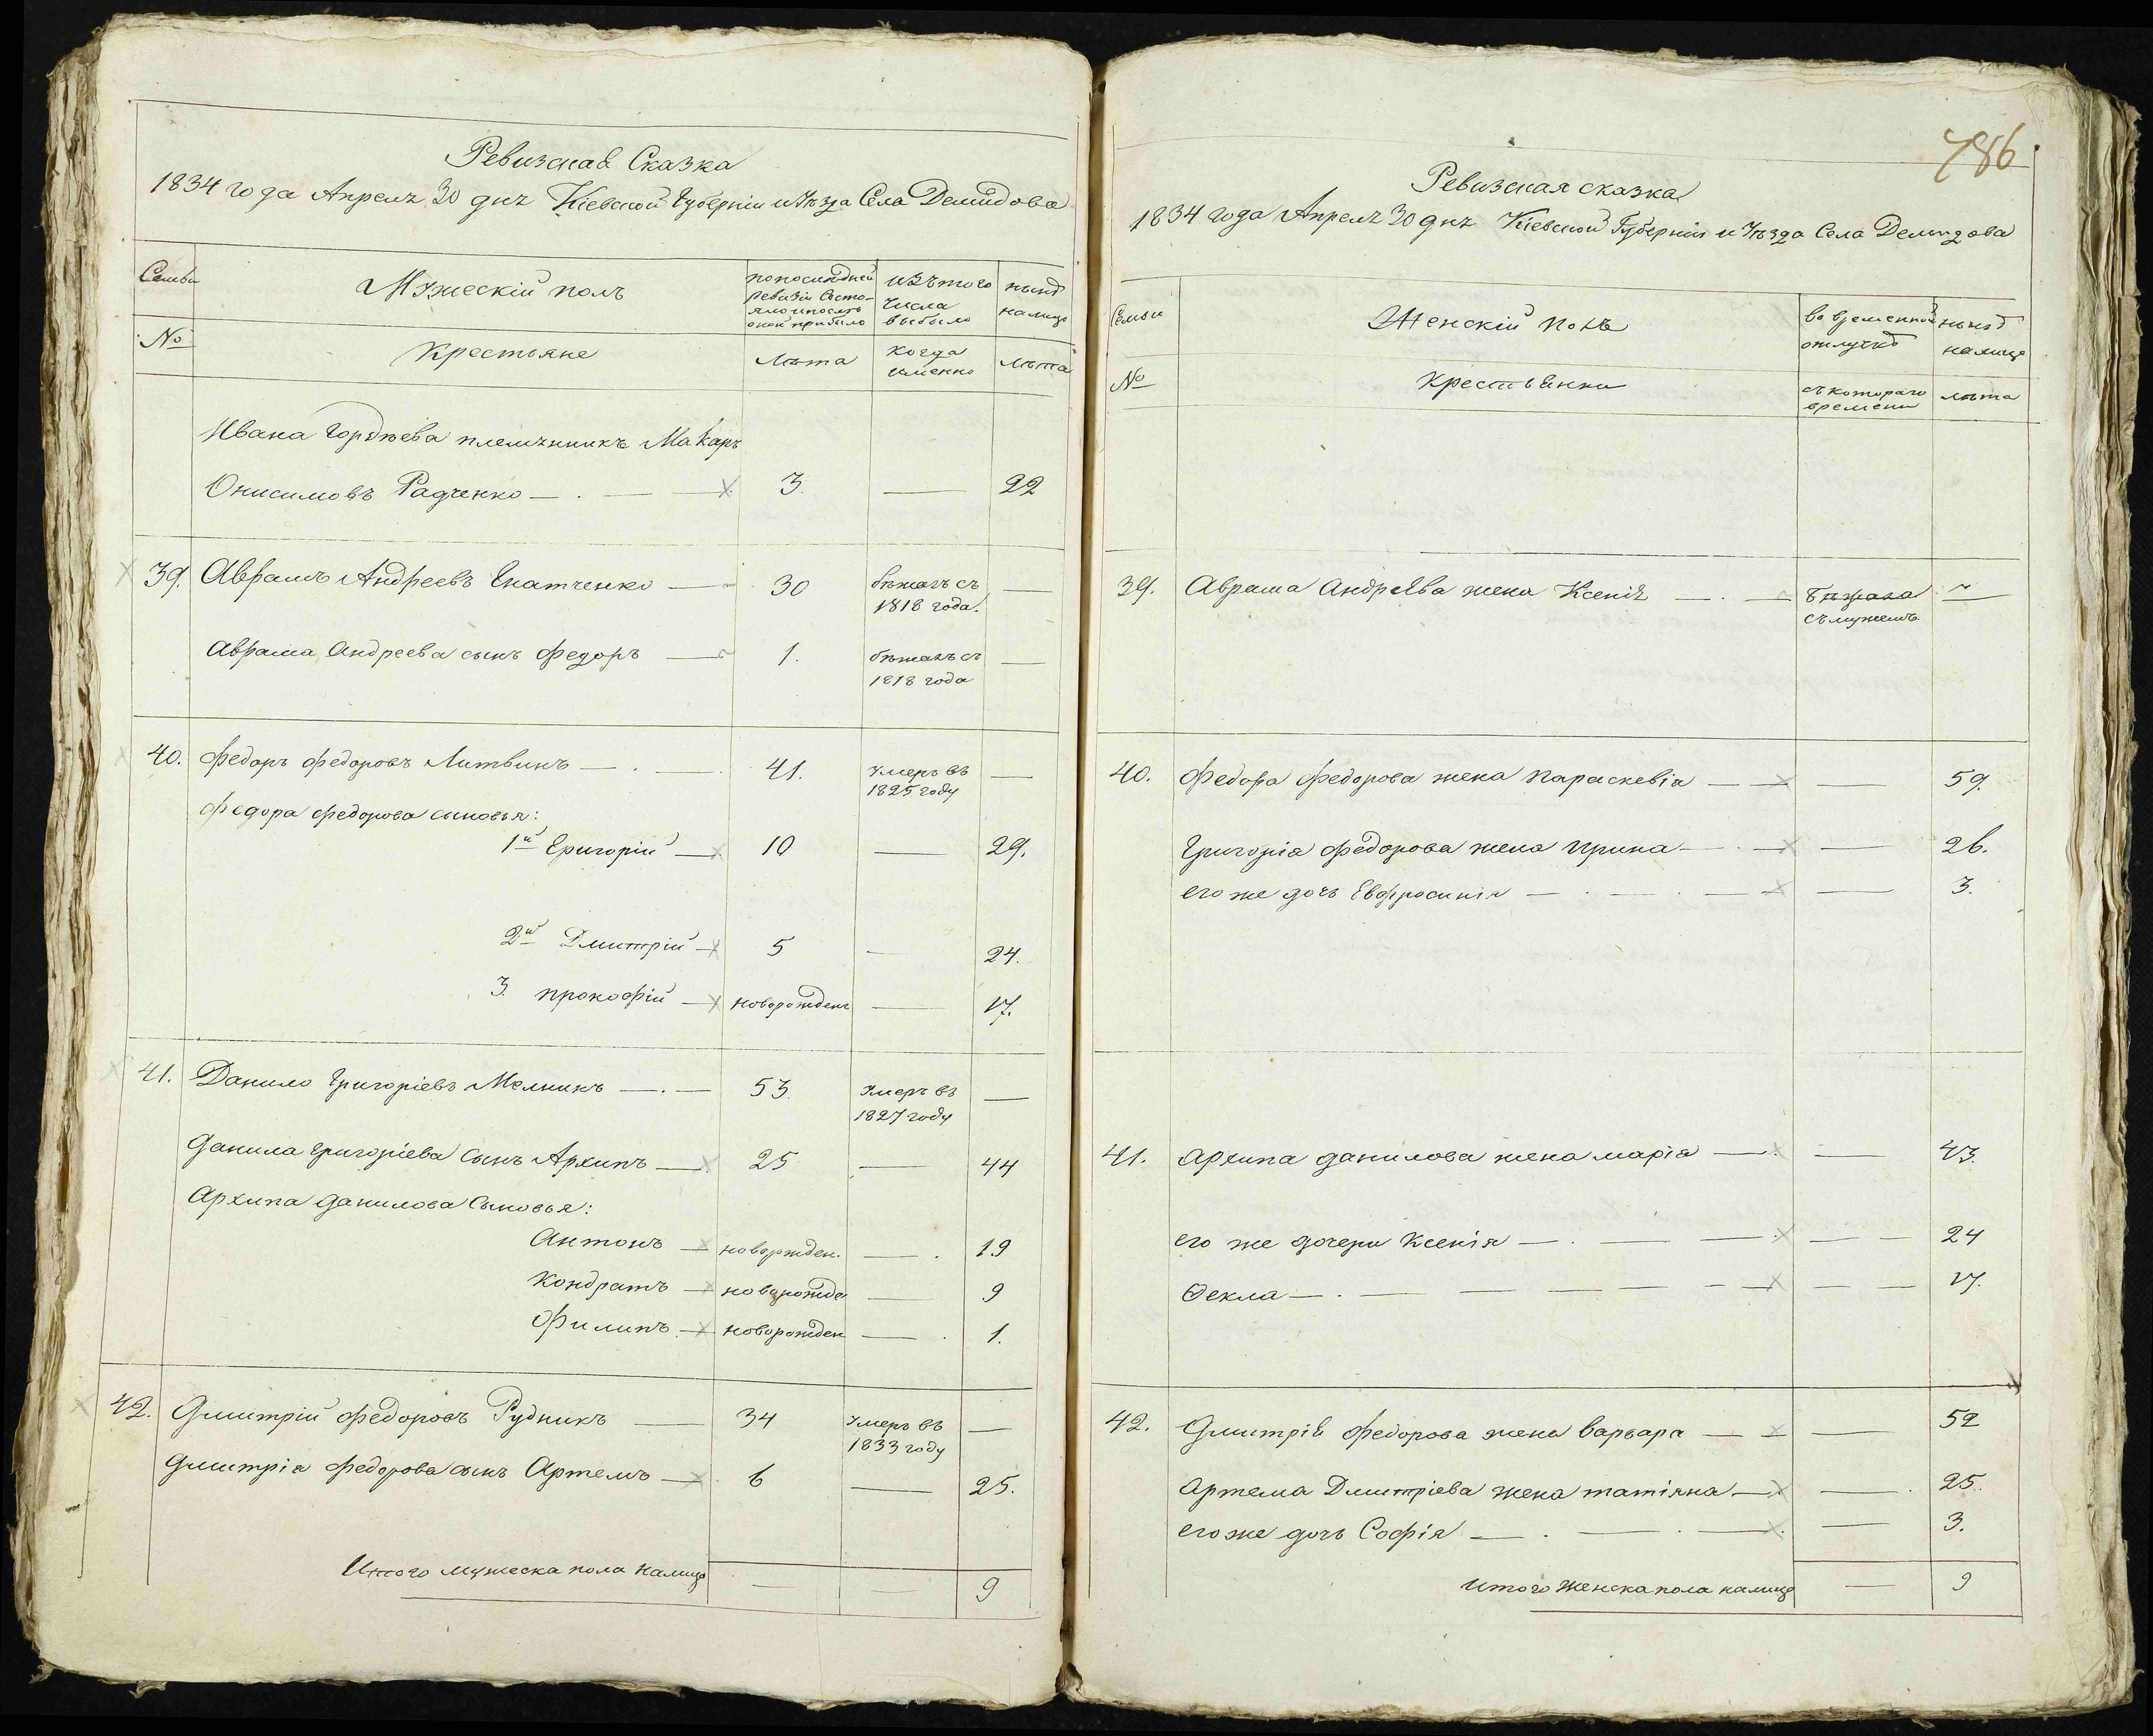 Ревизская Сказка
1834 года Апреля 30 дня Кіевской Губерніи и Уѣзда Села Демидова
Семьи
Мужескій полъ
по последней ревизіи состояло и послѣ оной прибыло
изъ того числа выбыло
нынѣ на лицо
№
Крестьяне
лѣта
когда именно
лѣта
Ивана Гордѣева племянникъ Макаръ
Онисимовъ Радченко — . — 3. — 22
39. Аврамъ Андреевъ Игнатченко — 30 бѣжалъ съ 1818 года. —
Аврама Андреева сынъ Федоръ — 1. бѣжалъ съ 1818 года —
40. Федоръ Федоровъ Литвинъ — . — 41. умеръ въ 1825 году —
Федора Федорова сыновья:
1й Григорій — 10 — 29.
2й Дмитрій — 5 — 24.
3. Прокофій — новорожденъ — 17.
41. Данило Григоріевъ Мелникъ — . — 53. умеръ въ 1827 году —
Данила Григоріева сынъ Архипъ — 25 — 44
Архипа Данилова сыновья:
Антонъ — новорожден. — . 19
Кондратъ — новорожде — 9
Филипъ — новорожден — . 1.
42. Дмитрій Федоровъ Рудникъ — 34 умеръ въ 1833 году —
Дмитрія Федорова сынъ Артемъ — 6 — 25.
Итого мужеска пола налицо — — 9
786
Ревизская сказка
1834 года Апреля 30 дня Кіевской Губерніи и Уѣзда Села Демидова
Семьи
Женскій полъ
во временной отлучкѣ
нынѣ налицо
№
Крестьянки
съ котораго времени
лѣта
39. Аврама Андреева жена Ксенія — . — Бѣжала съ мужемъ —
40. Федора Федорова жена Параскевія — — 59.
Григорія Федорова жена Ирина — . — — 26.
его же дочь Евфросинія — . — . — — 3.
41. Архипа Данилова жена Марія — — 43.
его же дочери Ксенія — . — — — 24
Ѳекла — . — — — — — — — 17.
42. Дмитрія Федорова жена Варвара — — — 52
Артема Дмитріева жена Татіяна — — . 25.
его же дочь Софія — . — . — — 3.
Итого женска пола налицо — 9